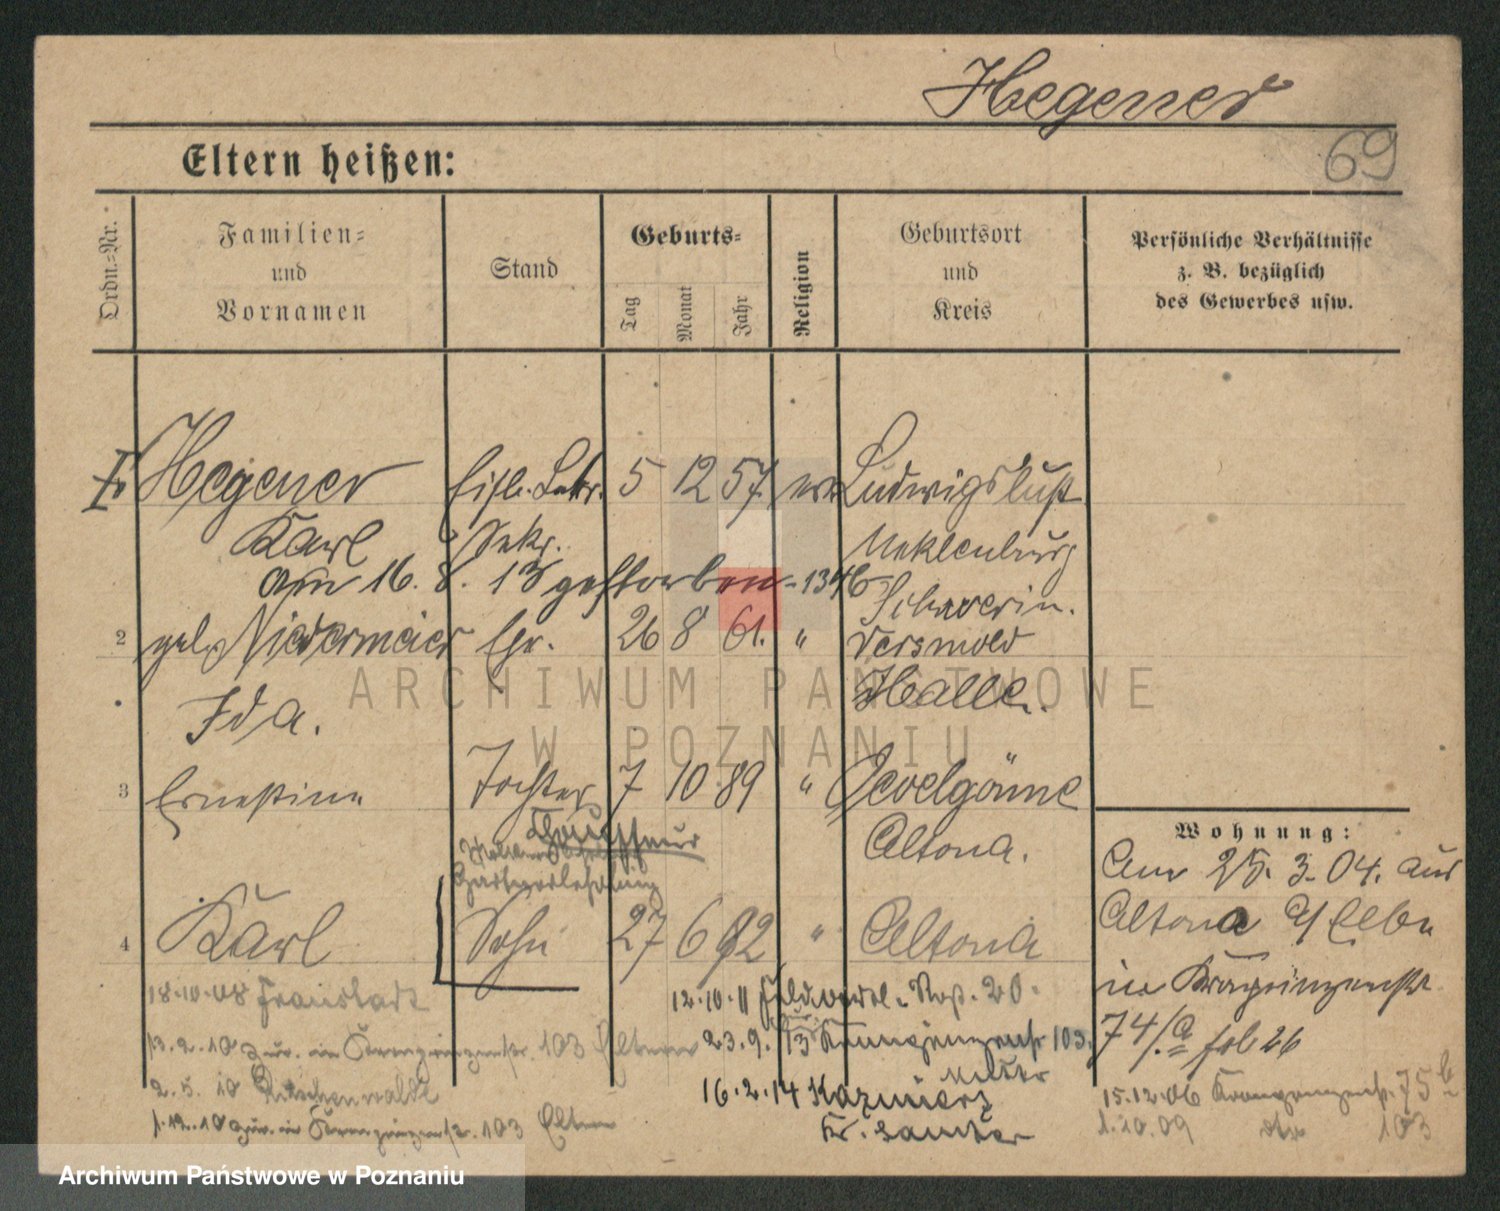 Hegener
69
Eltern heißen:
Ordn.-Nr.
Familien-
und
Vornamen
Stand
Geburts-
Tag
Monat
Jahr
Religion
Geburtsort
und
Kreis
Persönliche Verhältnisse
z. B. bezüglich
des Gewerbes usw.
Hegener 5 12 57. Ludwigslust
Karl Sekr. Meklenburg
am 16. 8. 13 gestorben - 1346 Schwerin.
2 geb. Niedermeier Ehr. 26 8 61. " Versmold
Ida. Halle.
3 Ernestine Tochter 7 10 89 " Oevelgönne
Altona.
Chauffeur
4 Karl Sohn 27 6 92 " Altona
Wohnung:
Am 25. 3. 04. aus
Altona a/Elbe
in Kronprinzenstr.
74/.a fol 26
15.12.06 Kronprinzenstr. 75b
1.10.09 dto 103
18.10.08 Fraustadt
12.10.11 Roß. 20.
13.2.10 zur. in Kronprinzenstr. 103 Eltern
23.9.13 Kronprinzenstr 103.
2.5.10
Mutter
16.2.14 Kazmierz
Kr. Samter
1.12.10 zur. in Kronprinzenstr. 103 Eltern
ARCHIWUM PAŃSTWOWE
W POZNANIU
Archiwum Państwowe w Poznaniu